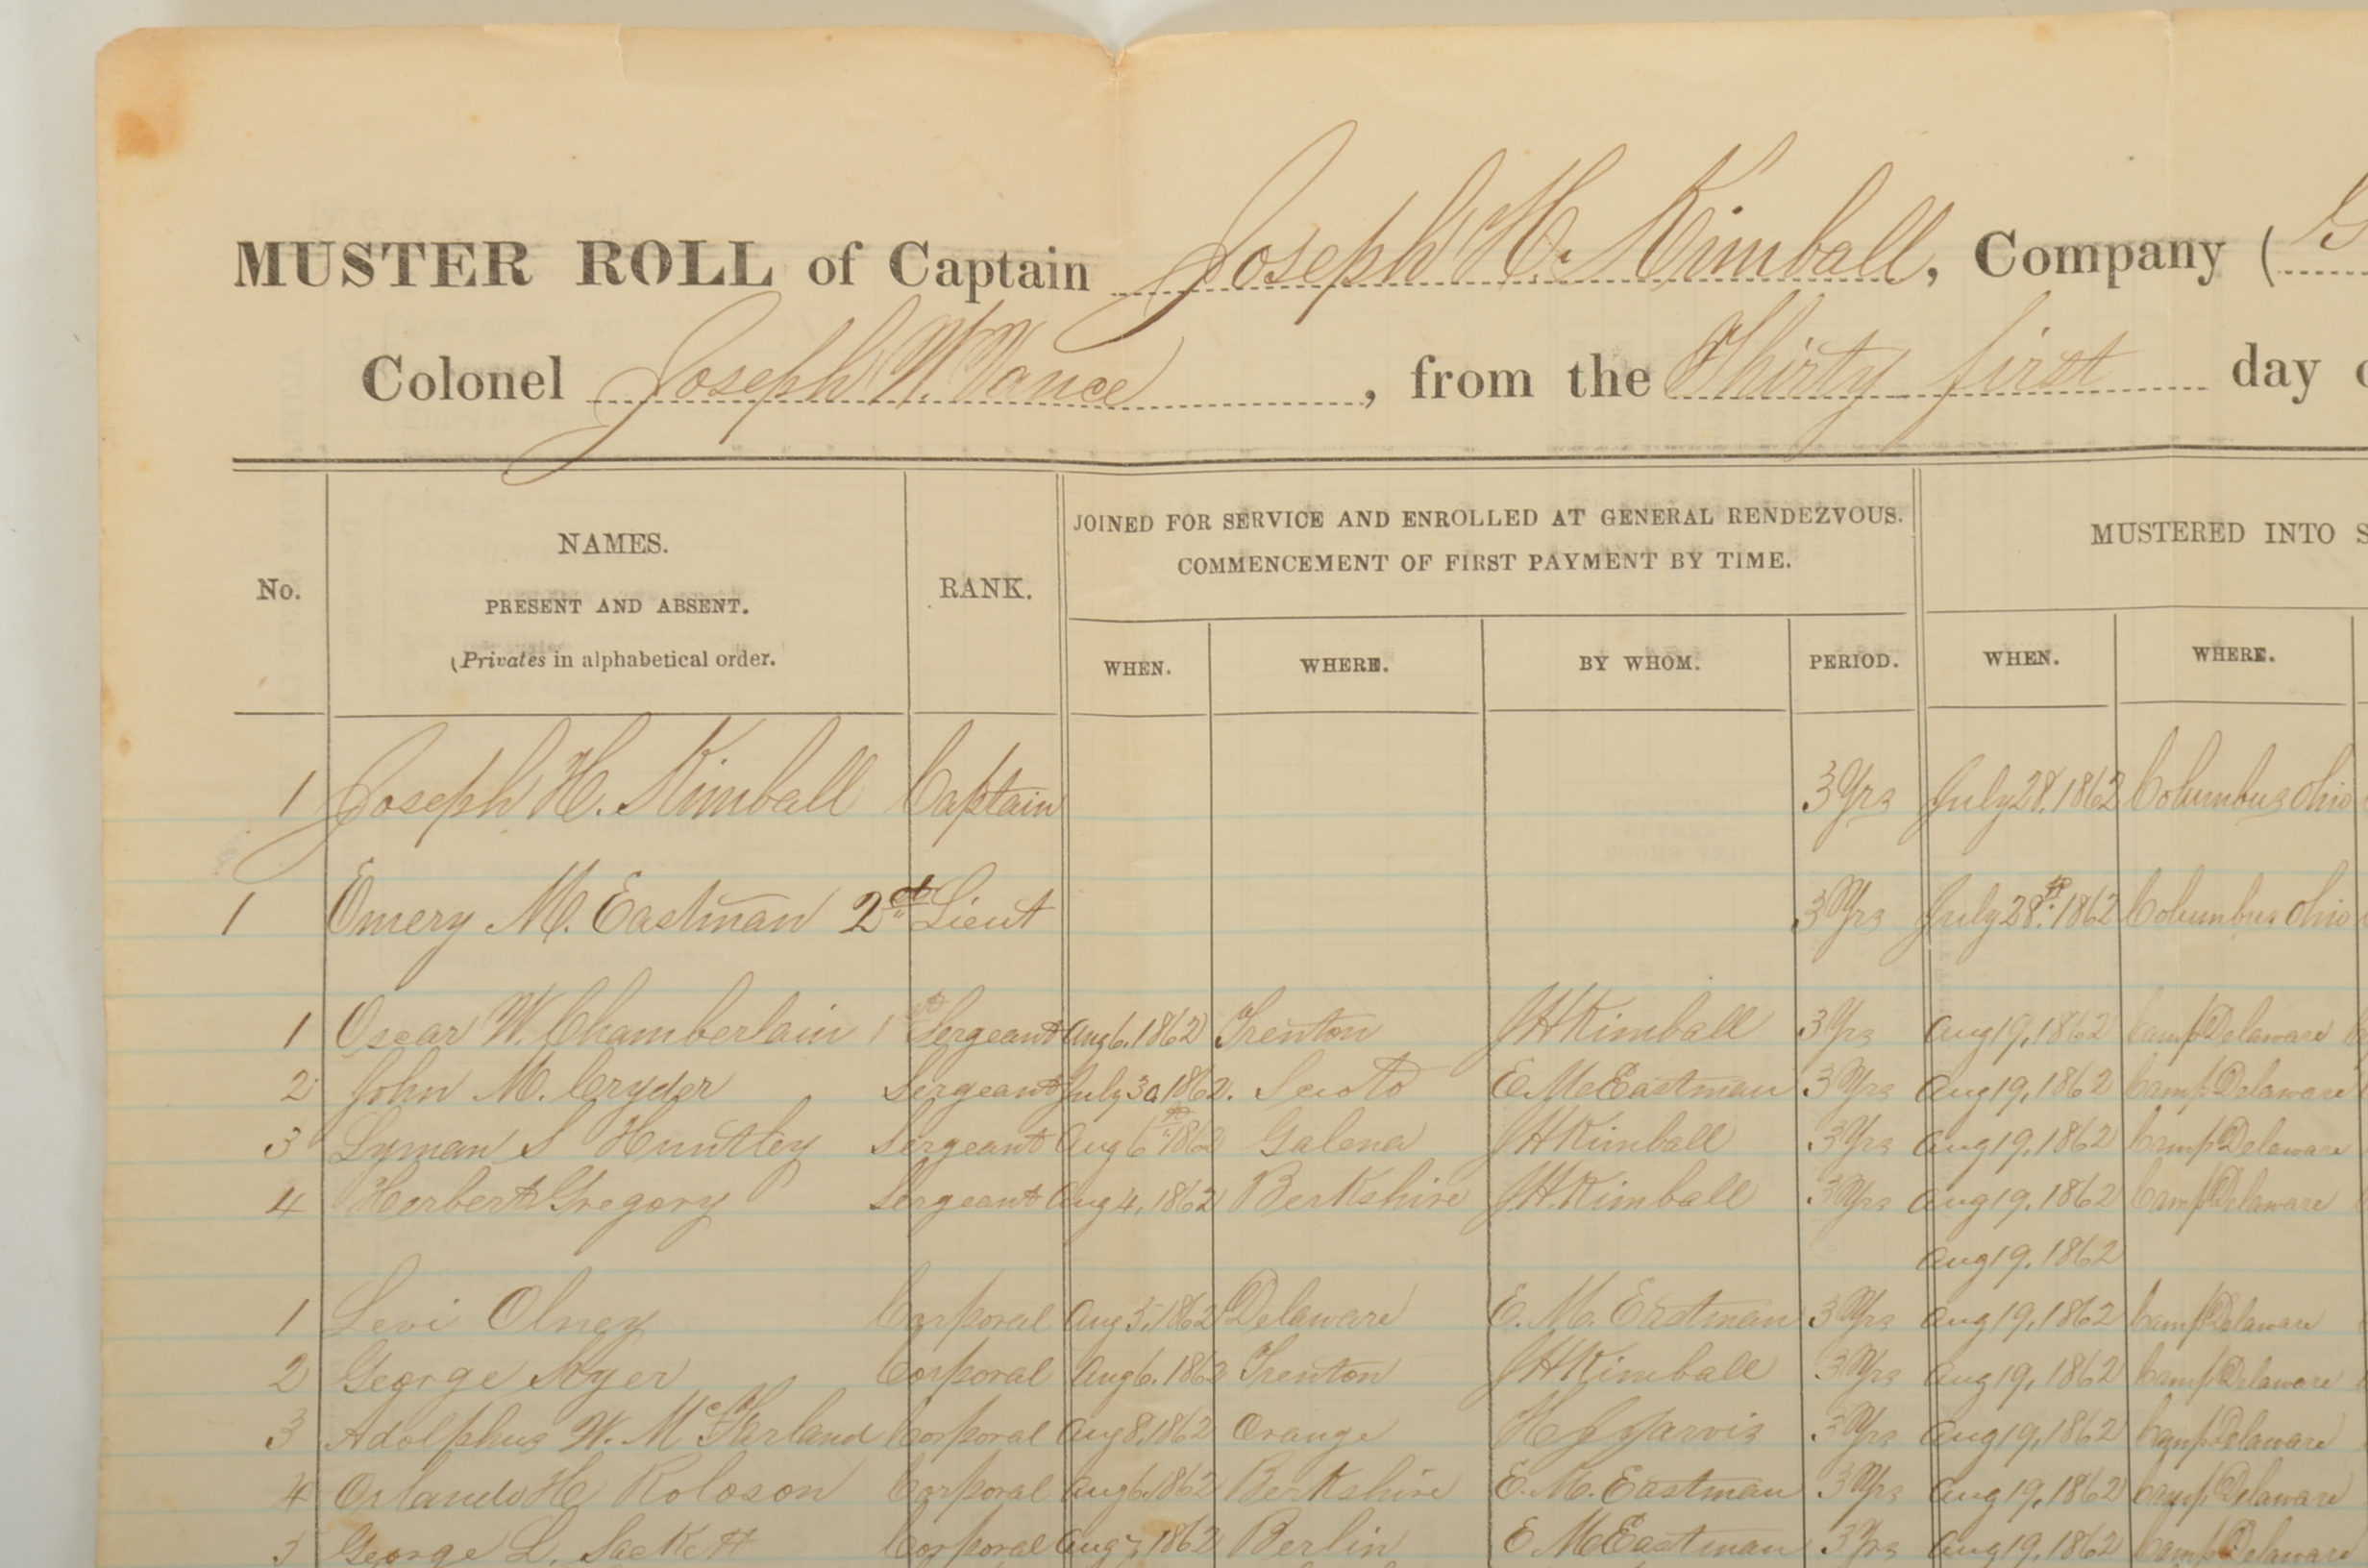 MUSTER ROLL of Captain Joseph H. Kimball, Company ( G
Colonel Joseph W. Vance, from the Thirty first day o
No. NAMES. PRESENT AND ABSENT. (Privates in alphabetical order. RANK. JOINED FOR SERVICE AND ENROLLED AT GENERAL RENDEZVOUS. COMMENCEMENT OF FIRST PAYMENT BY TIME. MUSTERED INTO S
WHEN. WHERE. BY WHOM. PERIOD. WHEN. WHERE.
1 Joseph H. Kimball Captain 3 Yrs July 28, 1862 Columbus Ohio
1 Emery M. Eastman 2nd Lieut 3 Yrs July 28th 1862 Columbus Ohio
1 Oscar W. Chamberlain 1st Sergeant Aug 6, 1862 Trenton J H Kimball 3 Yrs Aug 19, 1862 Camp Delaware
2 John M. Cryder Sergeant July 30, 1862. Scioto E. M. Eastman 3 Yrs Aug 19, 1862 Camp Delaware
3 Lyman S Huntley Sergeant Aug 6th 1862 Galena J H Kimball 3 Yrs Aug 19, 1862 Camp Delaware
4 Herbert Gregory Sergeant Aug 4, 1862 Berkshire J H. Kimball 3 Yrs Aug 19, 1862 Camp Delaware
Aug 19, 1862
1 Levi Olney Corporal Aug 5, 1862 Delaware E. M. Eastman 3 Yrs Aug 19, 1862 Camp Delaware
2 George Kyer Corporal Aug 6, 1862 Trenton J H Kimball 3 Yrs Aug 19, 1862 Camp Delaware
3 Adolphus W. McFarland Corporal Aug 8, 1862 Orange H J Jarvis 3 Yrs Aug 19, 1862 Camp Delaware
4 Orlando H Roloson Corporal Aug 6, 1862 Berkshire E. M. Eastman 3 Yrs Aug 19, 1862 Camp Delaware
5 George L. Sackett Corporal Aug 7, 1862 Berlin E M Eastman 3 Yrs Aug 19, 1862 Camp Delaware